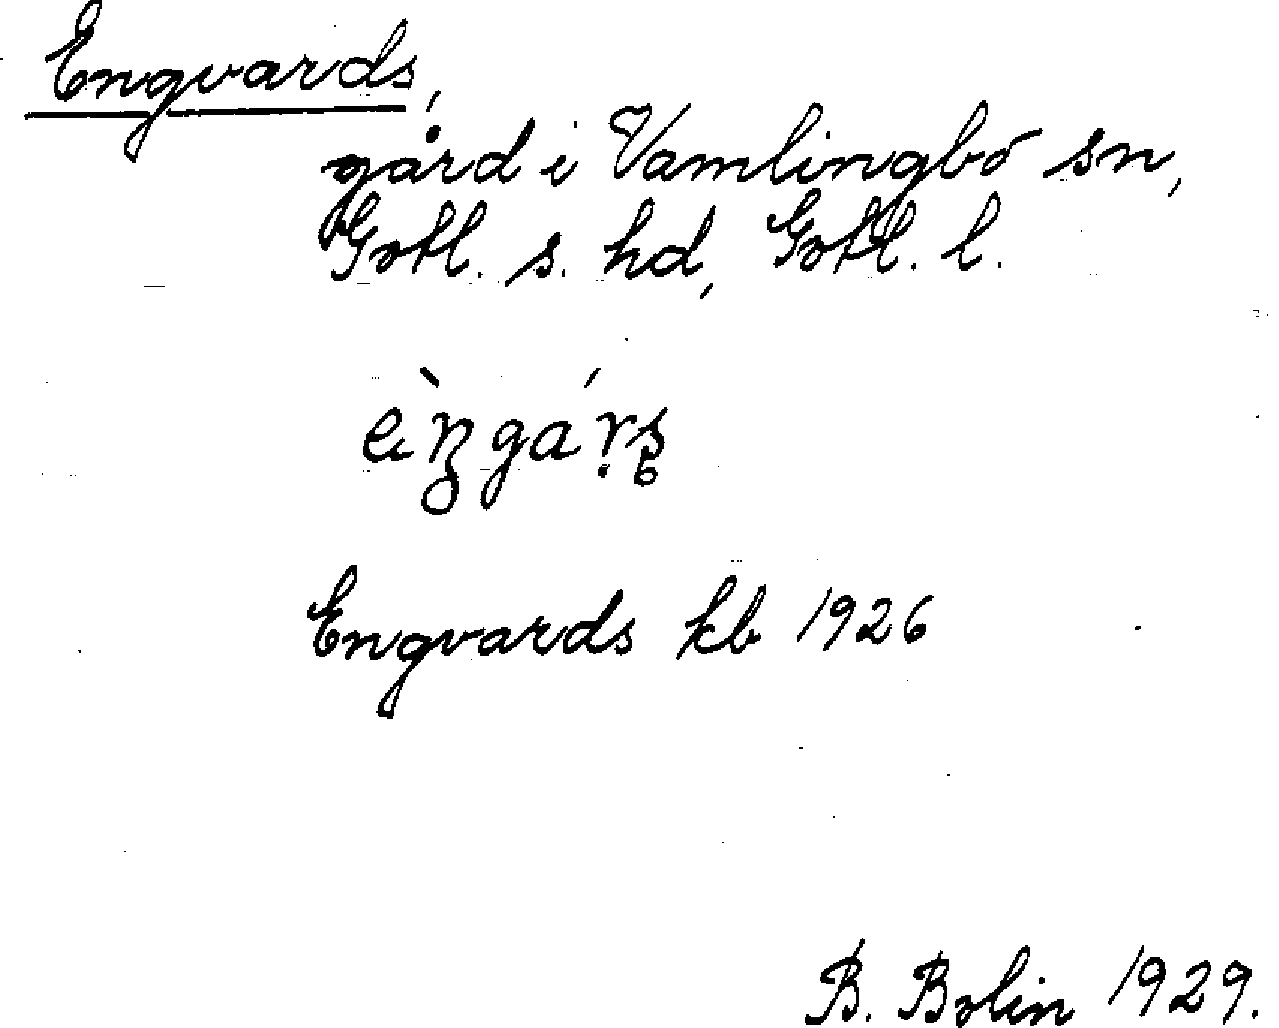 Engvards,
gård i Vamlingbo sn,
Gotl. s. hd, Gotl. l.
Engvards kb 1926
B. Bolin 1929.